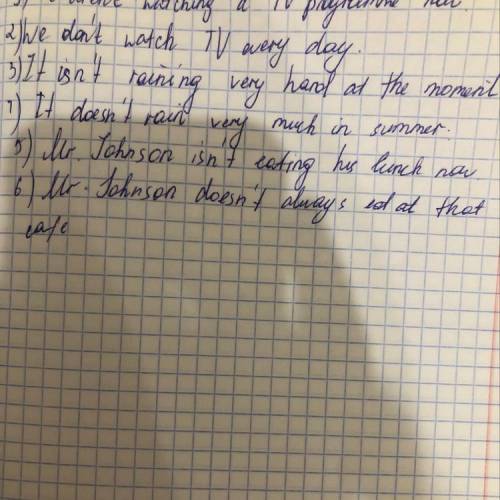 watching a TV programme now
2) We don't watch TV every day.
3) It isn't raining very hard at the moment
4) It doesn't rain very much in summer.
5) Mr. Johnson isn't eating his lunch now
6) Mr. Johnson doesn't always eat at that
cafe